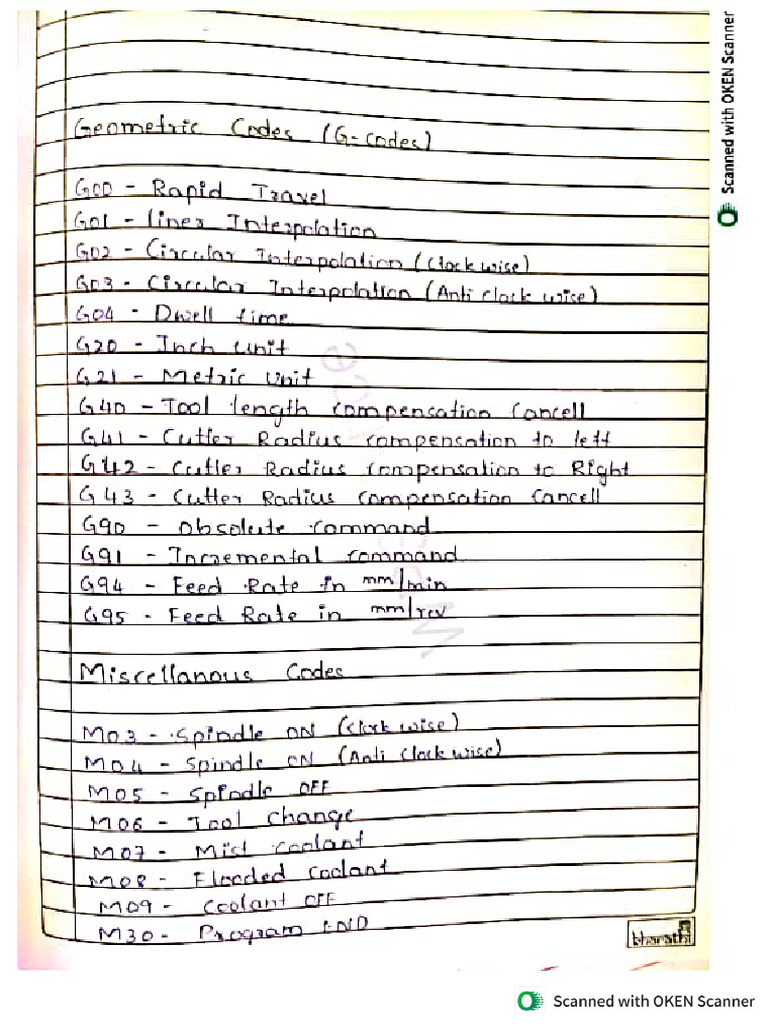 Geometric Codes (G-codes)
G00 - Rapid Travel
G01 - liner Interpolation
G02 - Circular Interpolation (clock wise)
G03 - Circular Interpolation (Anti clock wise)
G04 - Dwell time
G20 - Inch unit
G21 - Metric unit
G40 - Tool length compensation Cancell
G41 - Cutter Radius compensation to left
G42 - Cutter Radius compensation to Right
G43 - Cutter Radius compensation Cancell
G90 - Obsolute command
G91 - Incremental command
G94 - Feed Rate in mm/min
G95 - Feed Rate in mm/rev
Miscellanous Codes
M03 - Spindle ON (clock wise)
M04 - Spindle ON (Anti clock wise)
M05 - Spindle OFF
M06 - Tool change
M07 - Mist coolant
M08 - Flooded coolant
M09 - Coolant OFF
M30 - Program END
bharathi
Scanned with OKEN Scanner
Scanned with OKEN Scanner